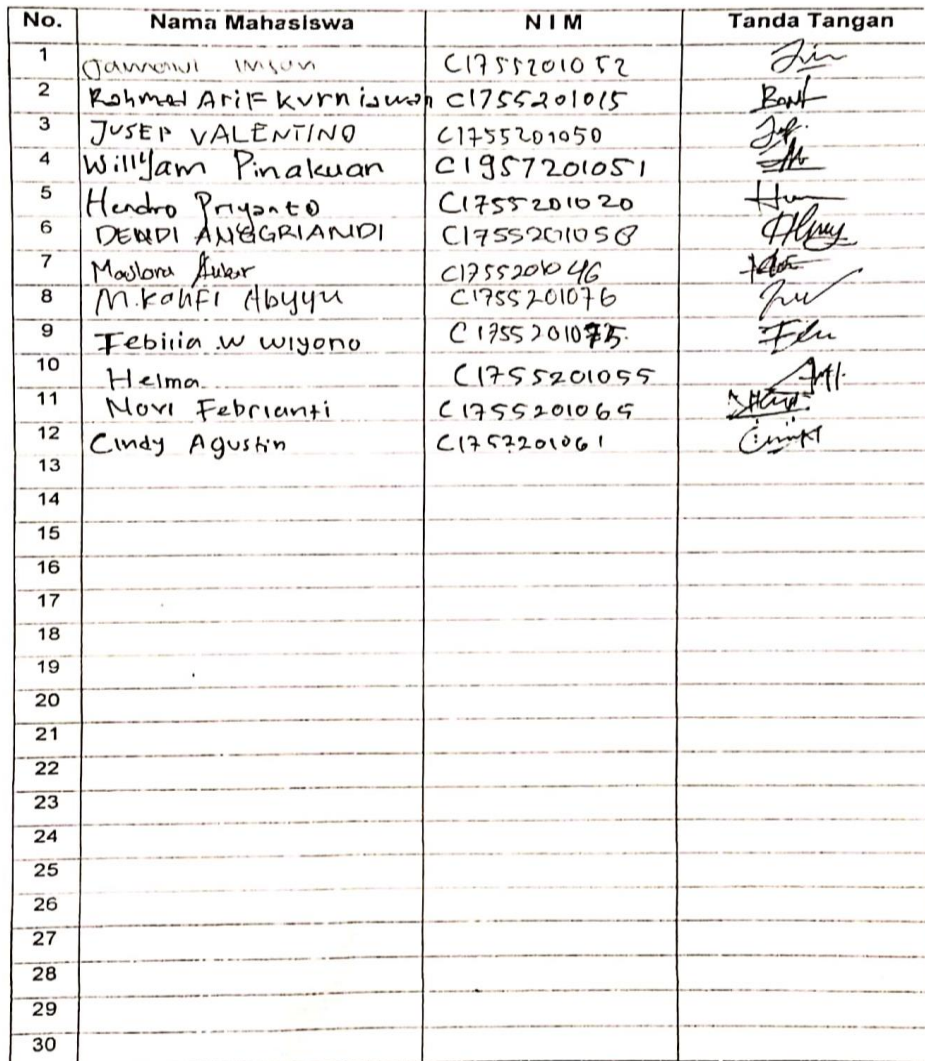 No. Nama Mahasiswa N I M Tanda Tangan
1 C1755201052
2 Rahmad Arif Kurniawan C1755201015
3 JUSEP VALENTINO C1755201050
4 Willyam Pinakuan C1957201051
5 Hendro Priyanto C1755201020
6 DENDI ANGGRIANDI C1755201058
7 C1755201046
8 M. Kahfi Abyyu C1755201076
9 Febilia W Wiyono C1755201075
10 Helma C1755201055
11 Novi Febrianti C1755201065
12 Cindy Agustin C1757201061
13
14
15
16
17
18
19
20
21
22
23
24
25
26
27
28
29
30